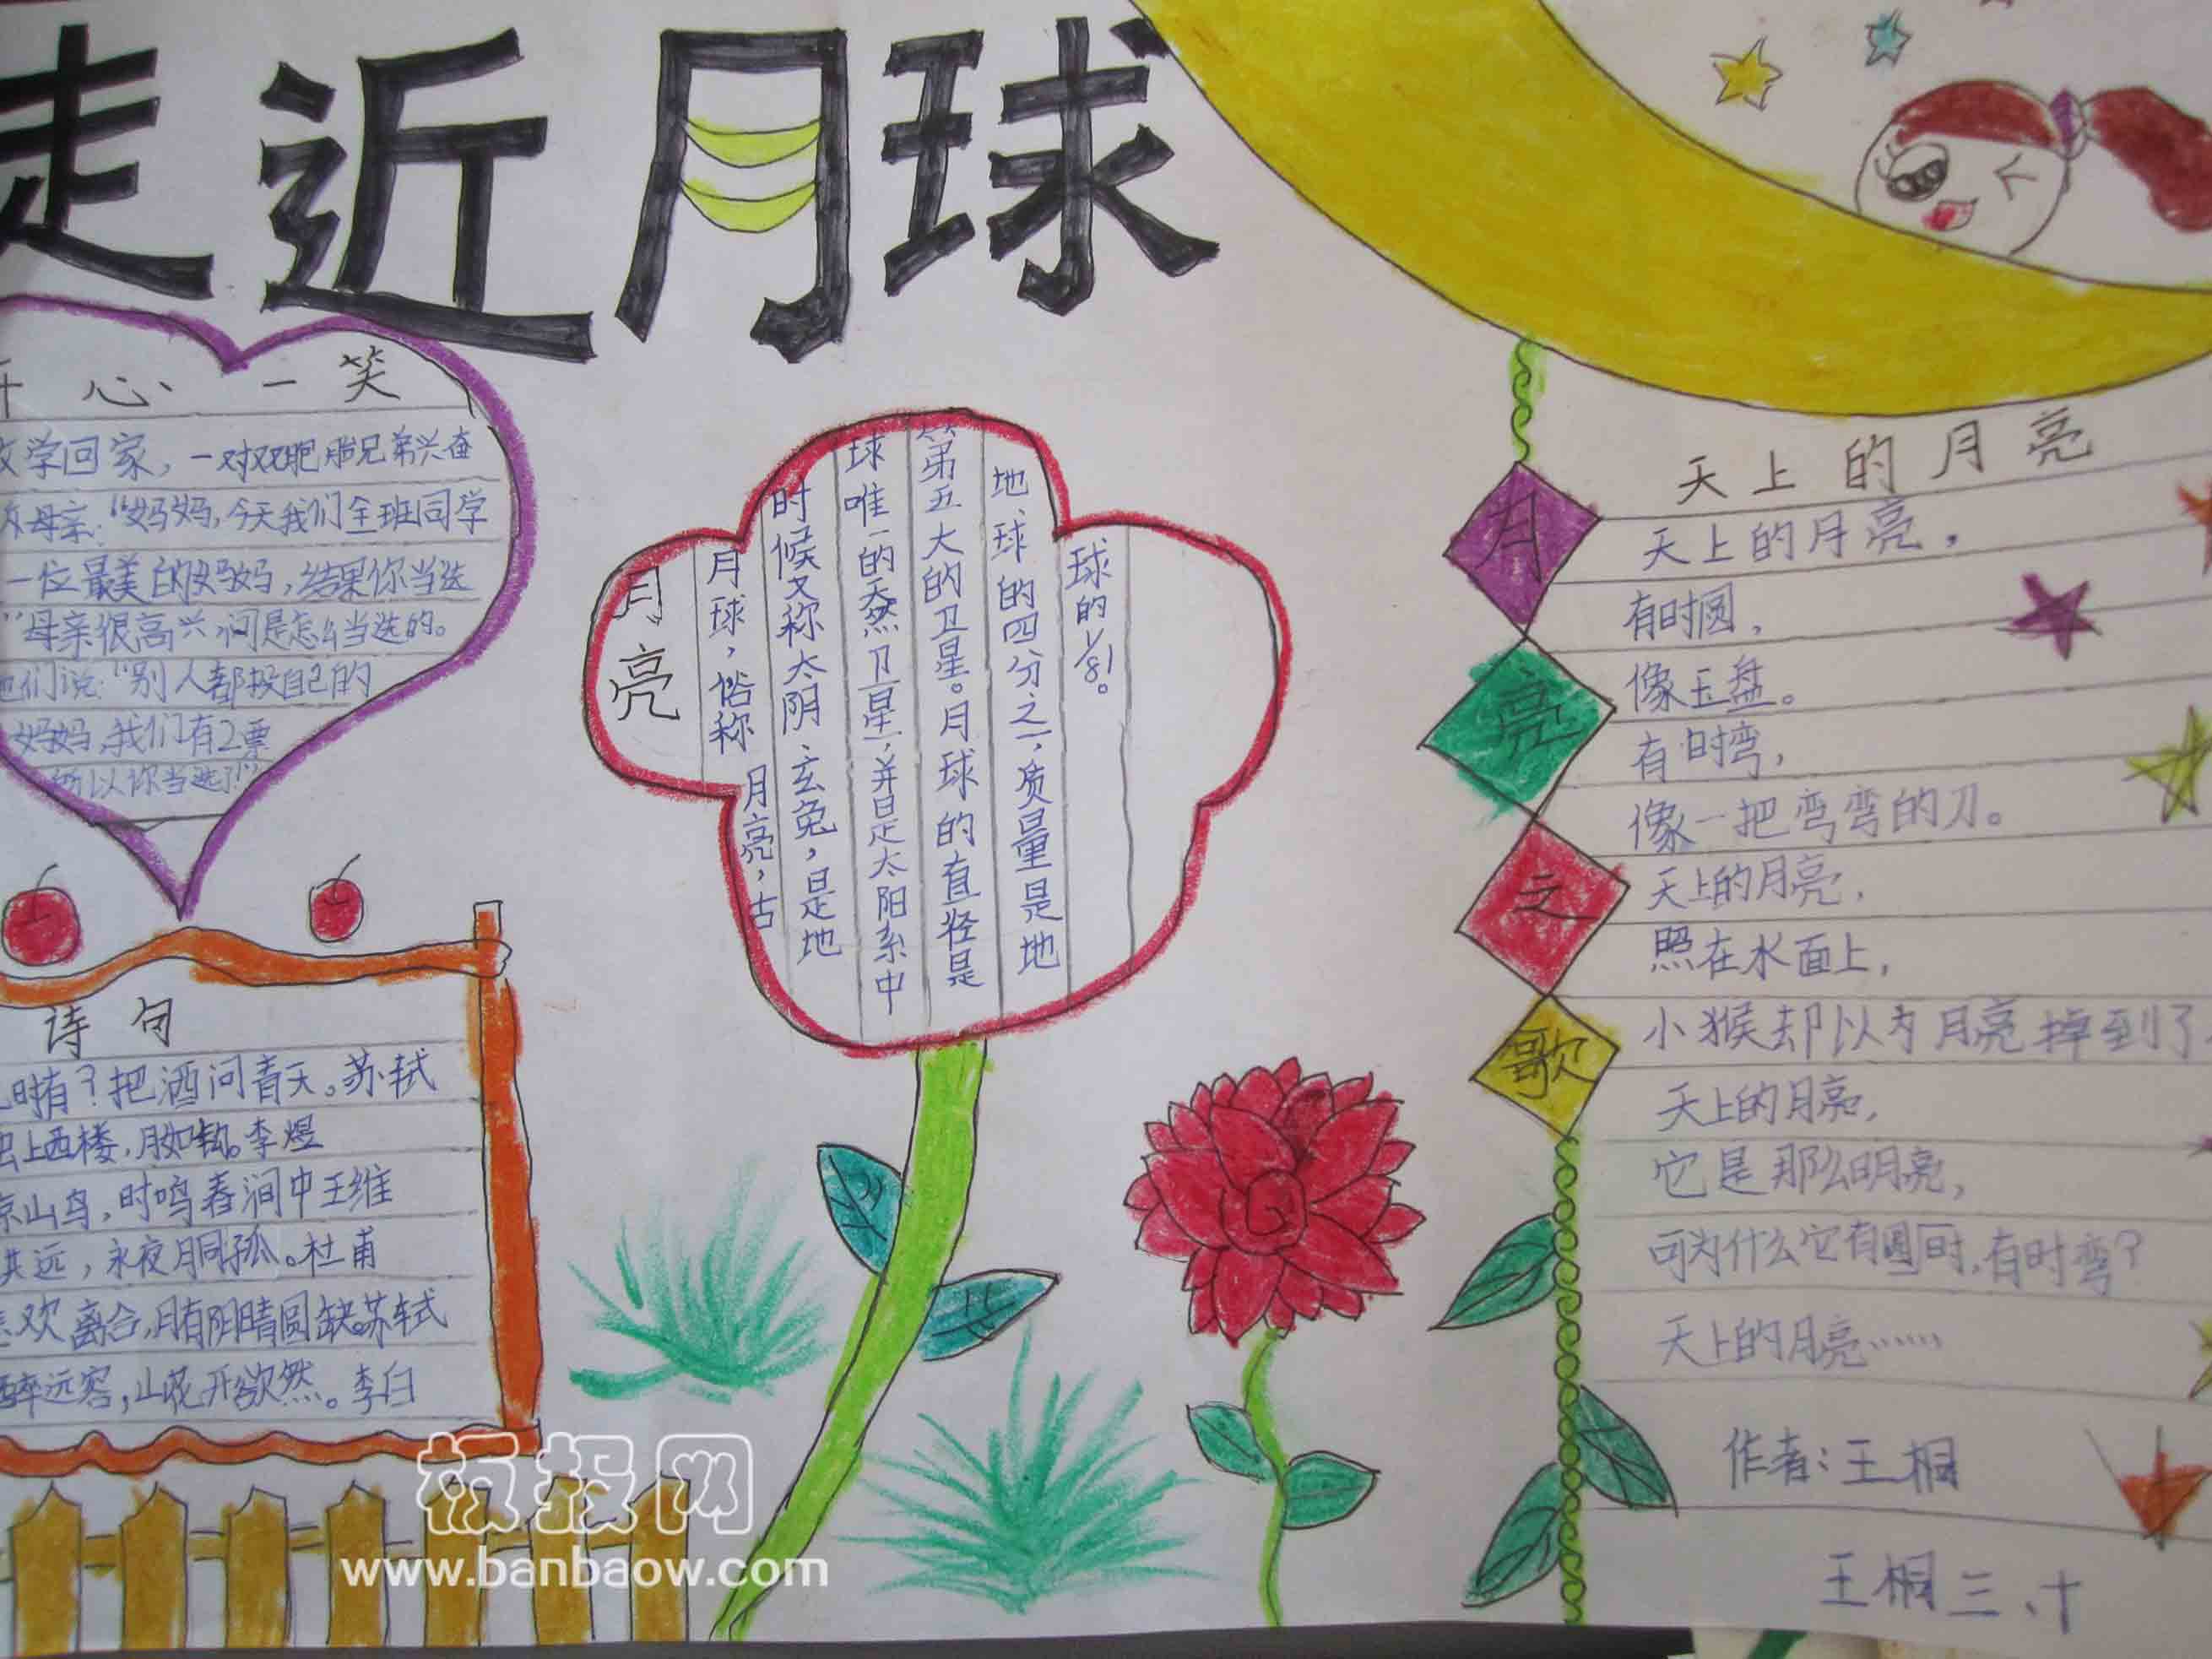 走近月球
心 一 笑
学回家，一对双胞胎兄弟兴奋
母亲："妈妈，今天我们全班同学
一位最美的妈妈，结果你当选
"母亲很高兴，问是怎么当选的。
们说："别人都投自己的
妈妈，我们有2票
所以你当选了"
诗 句
时有？把酒问青天。苏轼
上西楼，月如钩。李煜
山鸟，时鸣春涧中王维
共远，永夜月同孤。杜甫
欢离合，月有阴晴圆缺。苏轼
醉远客，山花开欲然。李白
月亮
月球，俗称
月亮，古
时候又称太阴、玄兔，是地
球唯一的天然卫星，并且是太阳系中
第五大的卫星。月球的直径是
地球的四分之一，质量是地
球的1/81。
月亮之歌
天上的月亮
天上的月亮，
有时圆，
像玉盘。
有时弯，
像一把弯弯的刀。
天上的月亮，
照在水面上，
小猴却以为月亮掉到了
天上的月亮，
它是那么明亮，
可为什么它有圆时，有时弯？
天上的月亮……
作者：王桐
王桐 三、十
板报网
www.banbaow.com